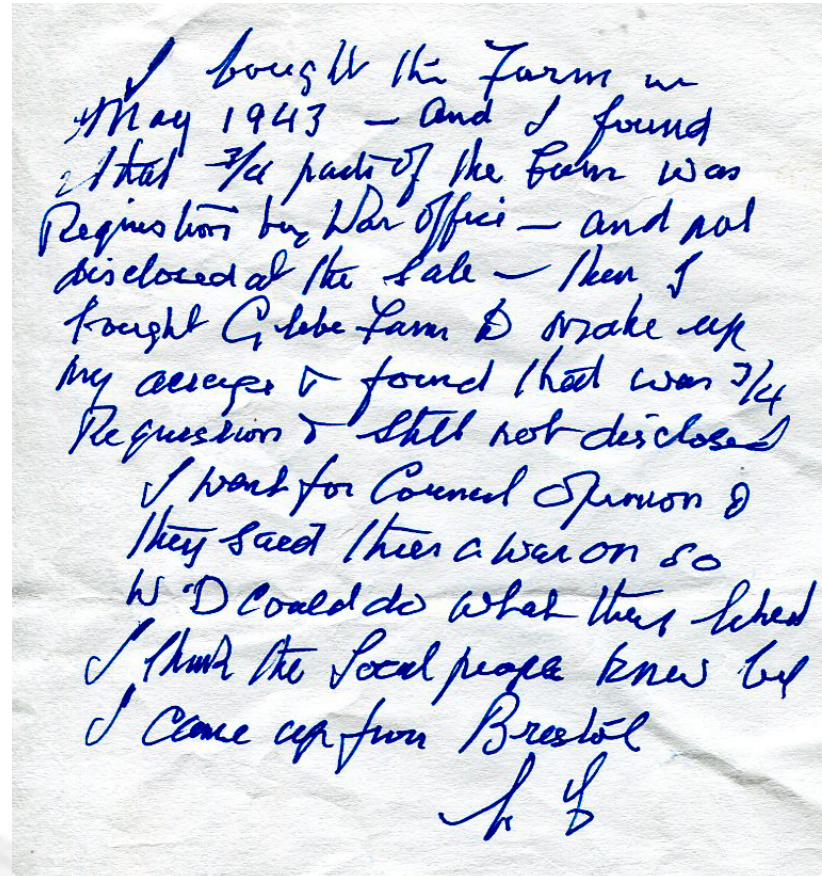 I bought this Farm in
May 1943 – and I found
that 3/4 parts of the Farm was
Requistion by War Office – and not
disclosed at the Sale – then I
bought Glebe Farm to make up
my acerage & found that was 3/4
Requission & still not disclosed
I went for Councel Opinion &
they said thier a war on so
W.D could do what they liked
I think the Local people knew but
I came up from Bristol